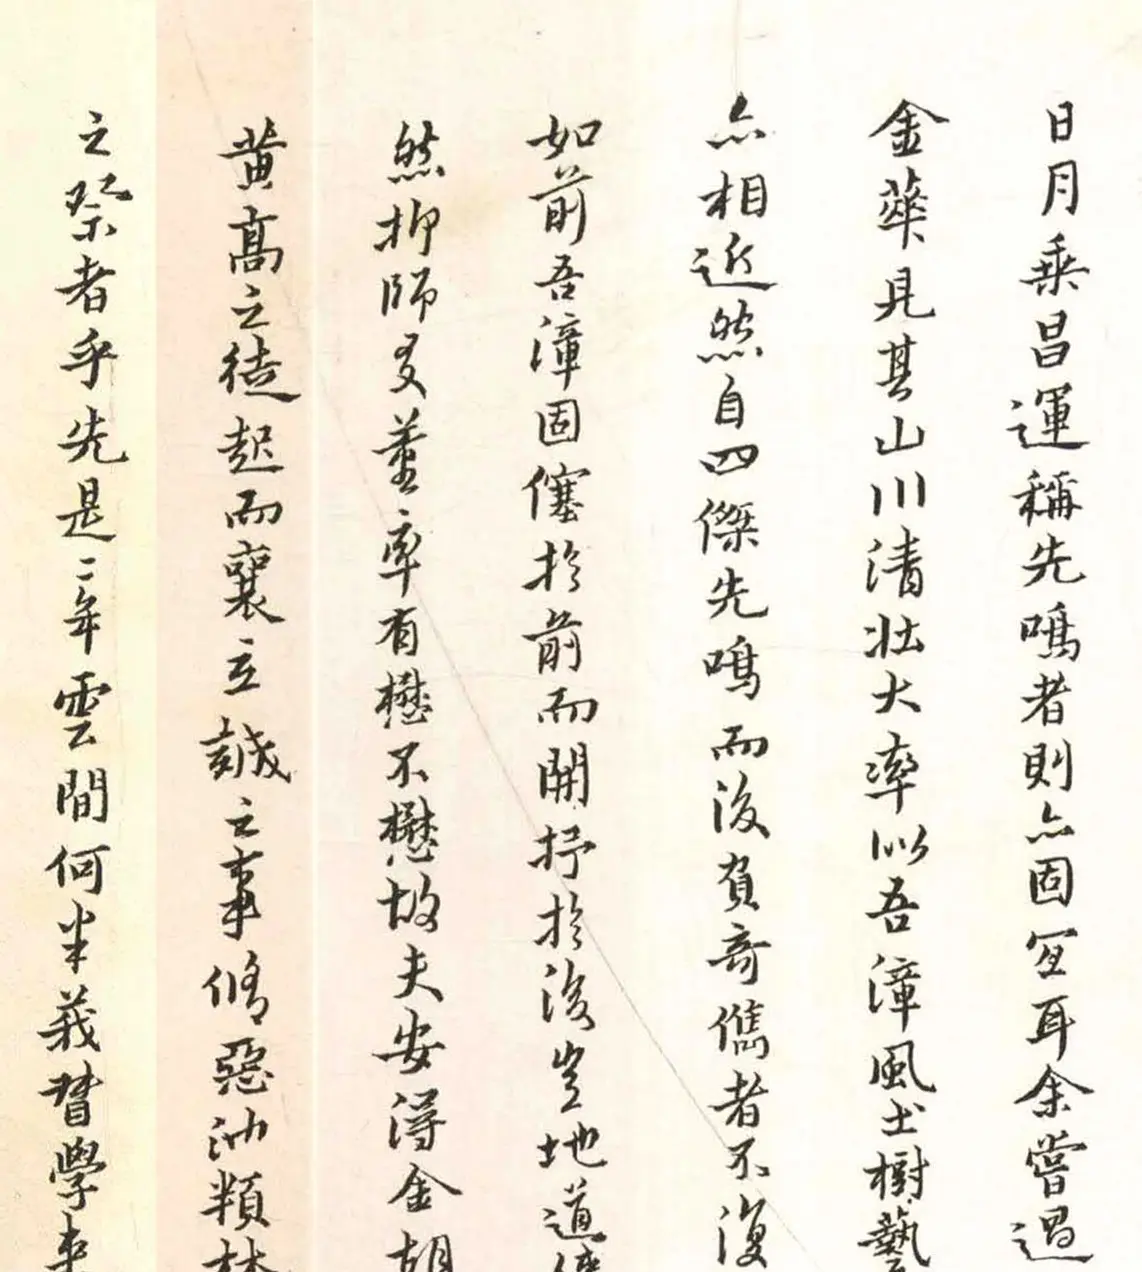 日月乗昌運稱先鳴者則亦固宜耳余嘗過
金華見其山川清壮大率似吾漳風土樹藝
亦相近然自四傑先鳴而後負奇儁者不復
如前吾漳固僿於前而開抒於後豈地道使
然抑師友董率有懋不懋故夫安得金胡
黄髙之徒起而襄立誠之事脩惡沕類林
之祭者乎先是二年雲間何半莪督學来